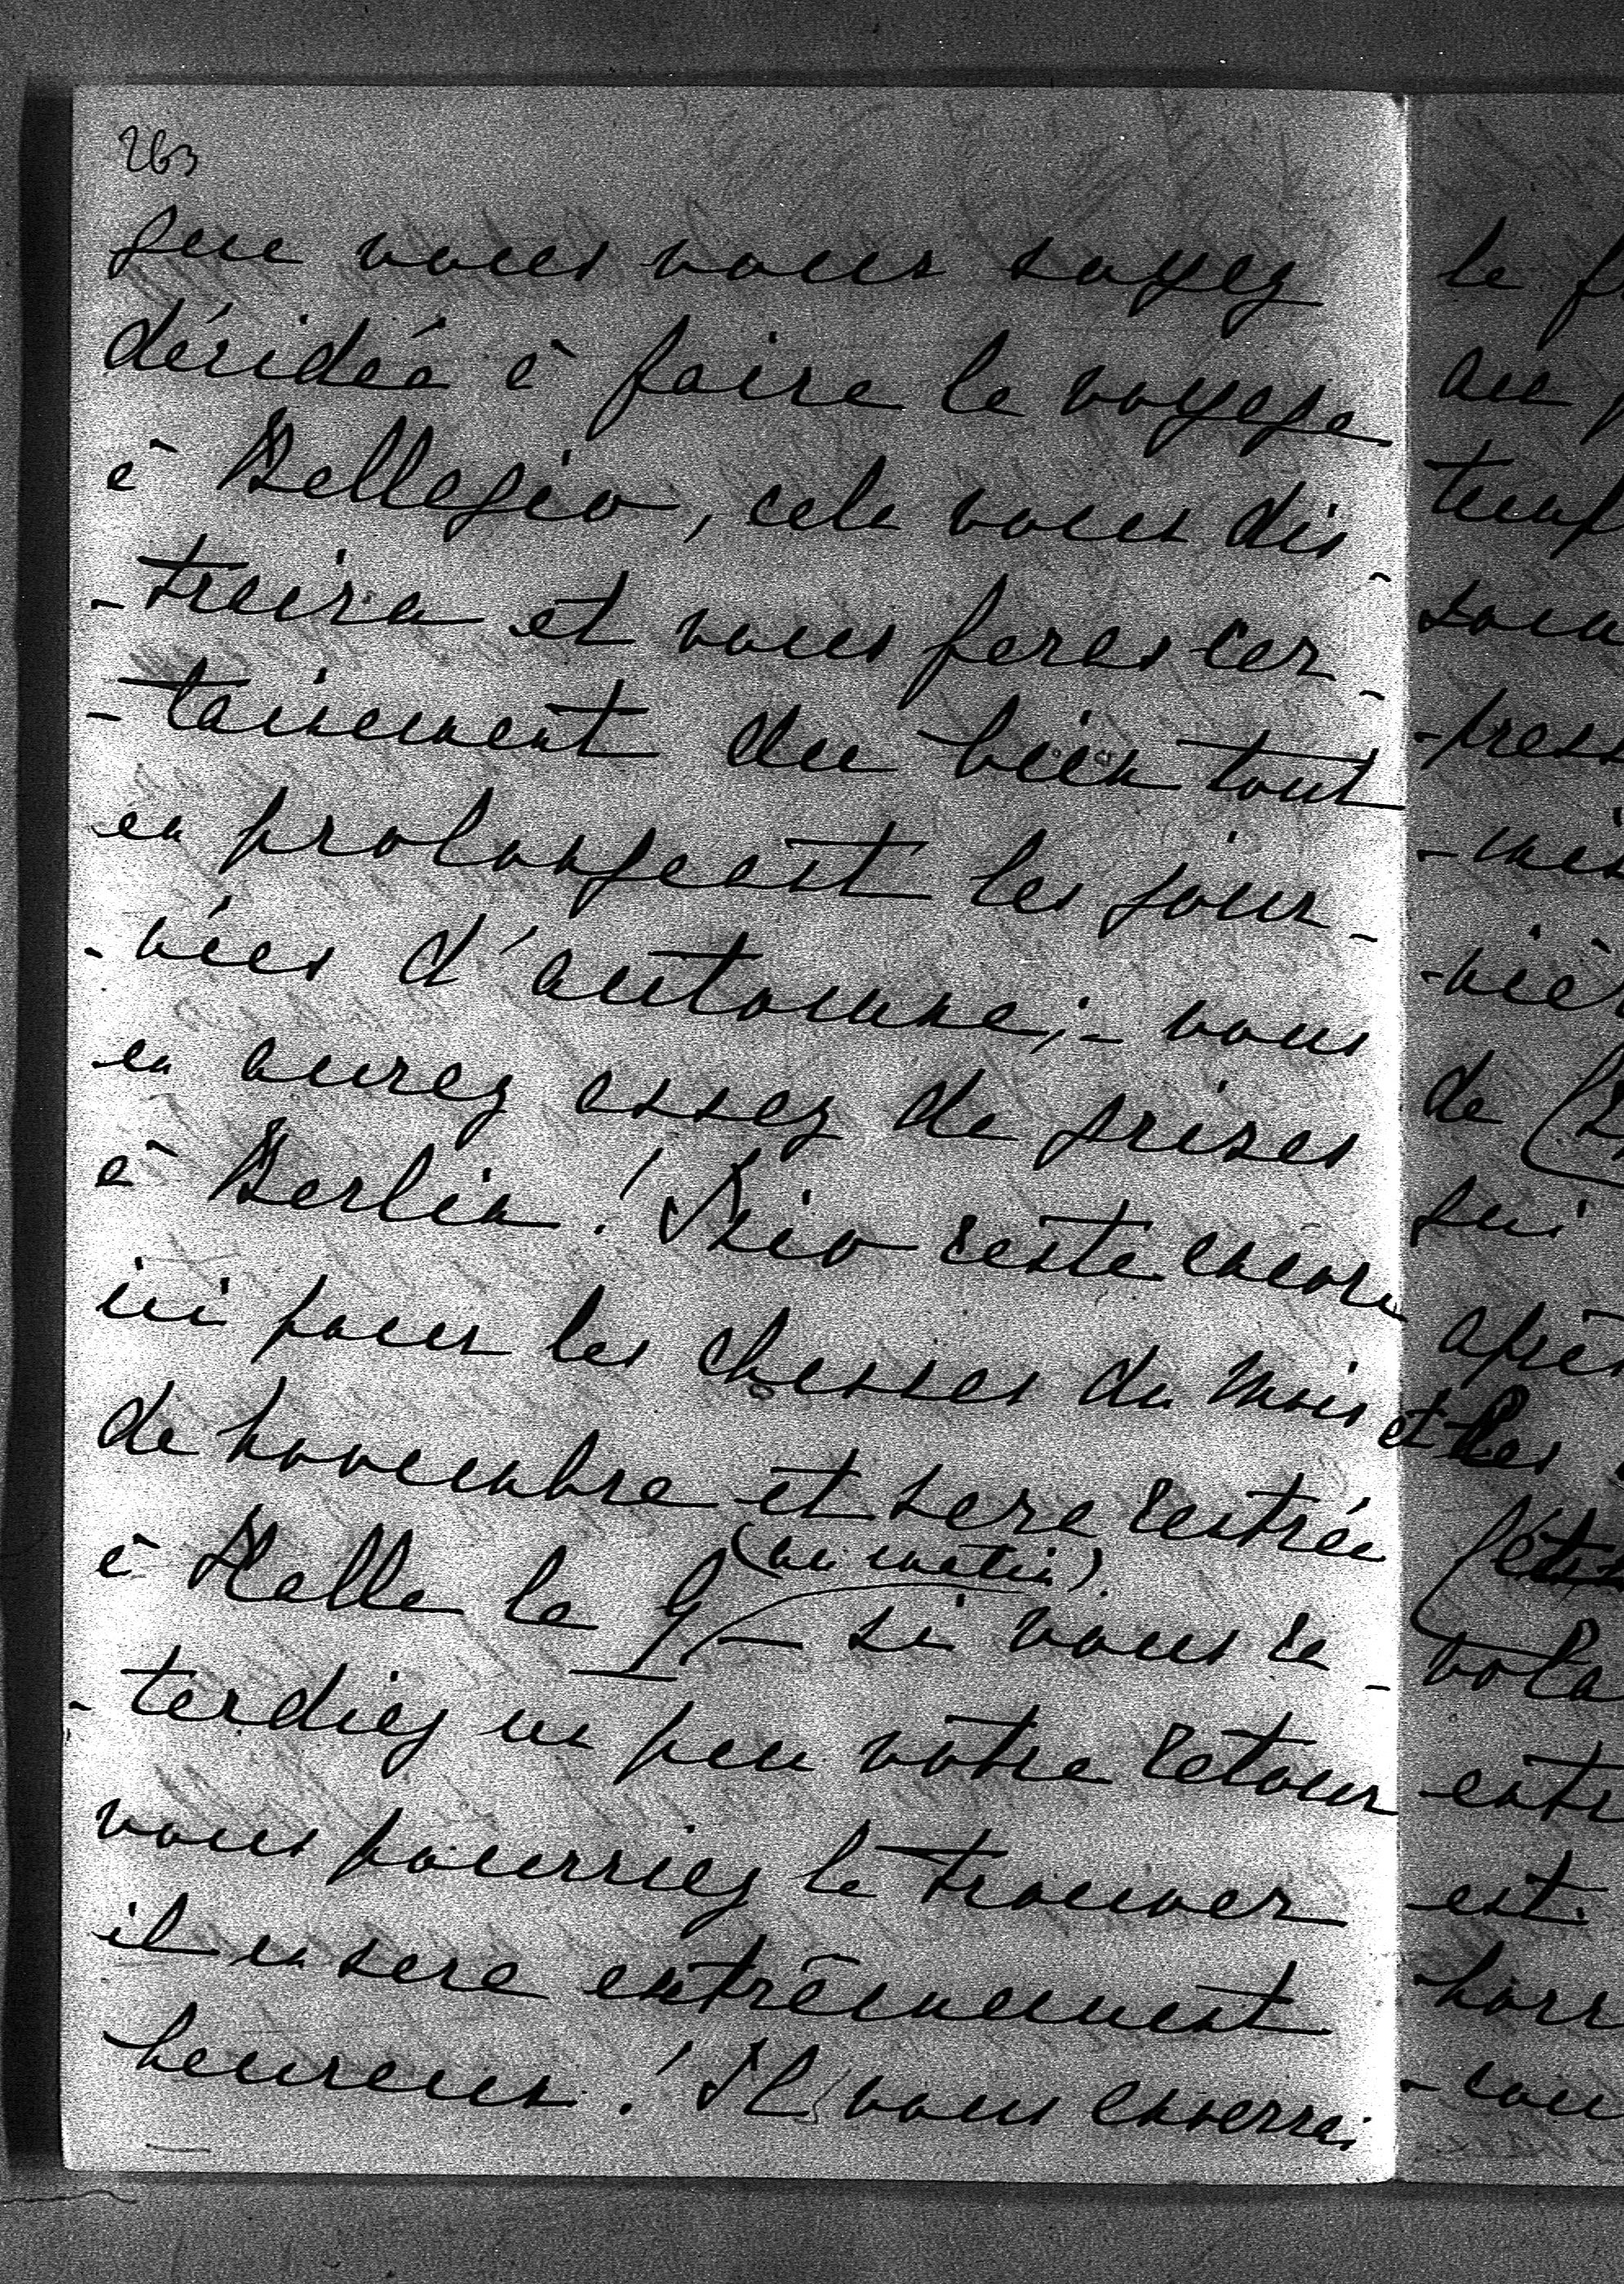 263
que vous vous soyez
décidée à faire le voyage
à Bellagio, cela vous dis-
-traira et vous feras cer-
-tainement du bien tout
en prolongeant les jour-
-nées d'automne; - vous
en aurez assez de grises
à Berlin! Bio reste encore
ici pour les chasses du mois
de novembre et sera rentrée
à Halle le 9 (au matin).
- si vous re-
-tardiez un peu votre retour
vous pourriez le trouver
il en sera extrêmement
heureux! Il vous enverrai
le
au
-press
de
qui
après
et les
est.